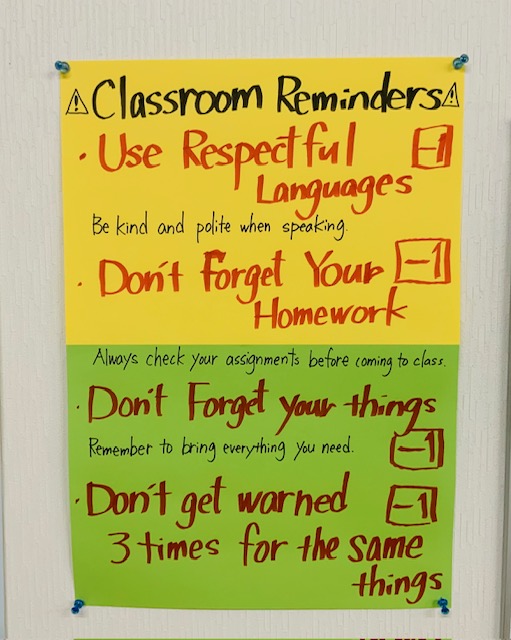 ⚠Classroom Reminders⚠
· Use Respectful -1
Languages
Be kind and polite when speaking.
· Don't Forget Your -1
Homework
Always check your assignments before coming to class.
· Don't Forget your things
Remember to bring everything you need. -1
· Don't get warned -1
3 times for the same
things